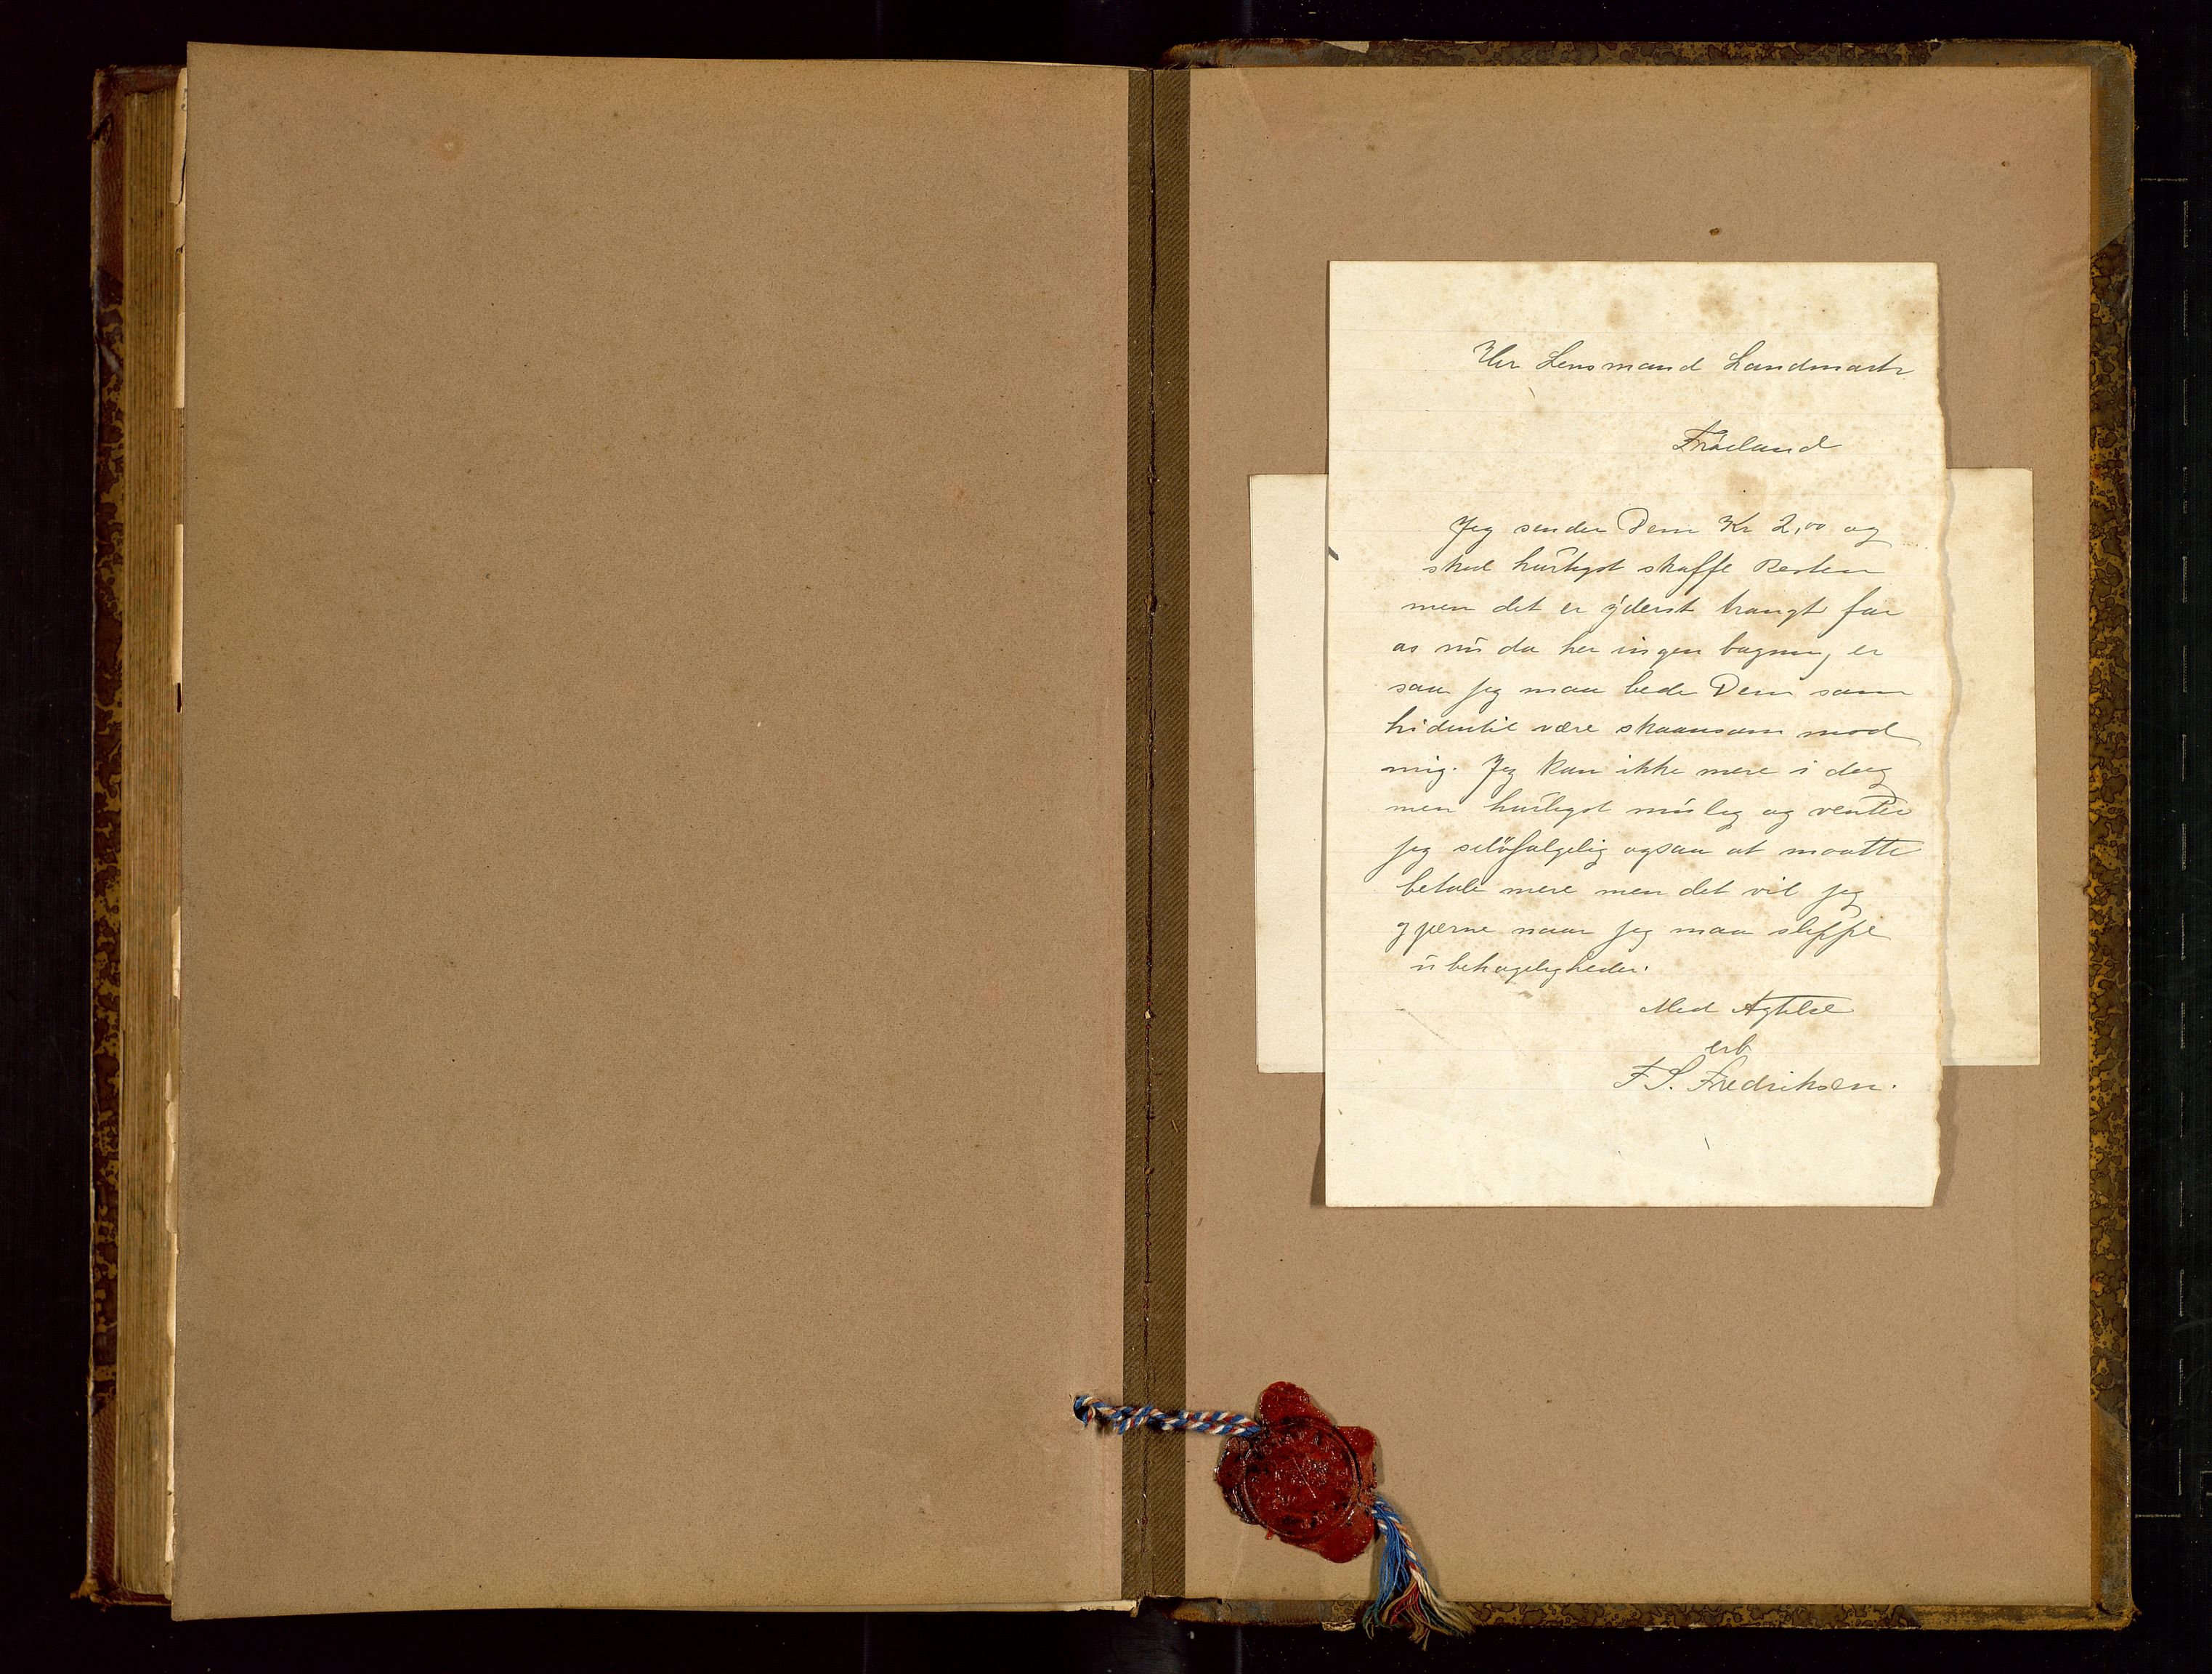 Hr Lensmand Landmark
Frøiland
Jeg sender Dem Kr 2,00 og
skal hurtigst skaffe Resten
men det er yderst trangt for
os nu da her ingen bagning er
saa jeg maa bede Dem som
hidentil være skaansom mod
mig. Jeg kan ikke mere i dag
men hurtigst mulig og venter
jeg selvfølgelig ogsaa at maatte
betale mere men det vil jeg
gjerne naar jeg maa slippe
ubehageligheder.
Med Agtelse
erb
F S. Fredriksen.